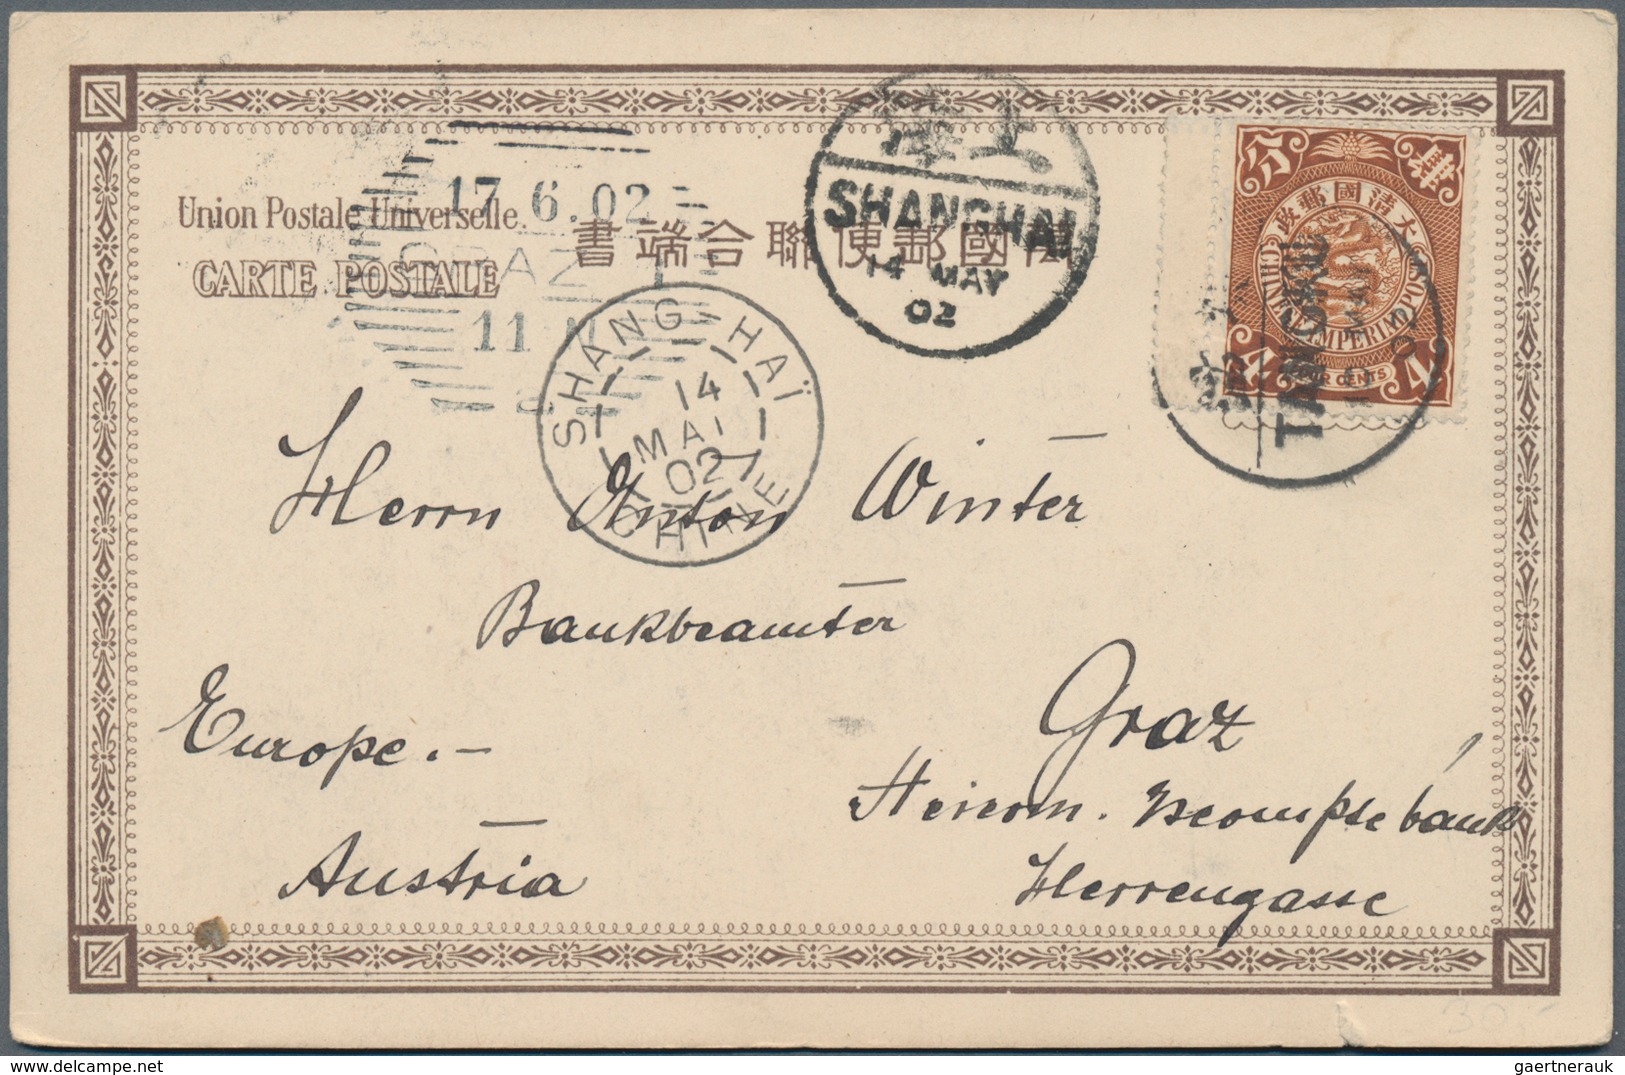 Union Postale Universelle.
CARTE POSTALE
萬國郵便聯合端書
17.6.02
11
上海
SHANGHAI
14 MAY
02
SHANG-HAÏ
14
MAI
02
CHINE
大清國郵政
CHINESE IMPERIAL POST
FOUR CENTS
4 4
Herrn Anton Winter
Bankbeamter
Europe.-
Graz
Austria
Herrengasse
30,-
gaertnerauk